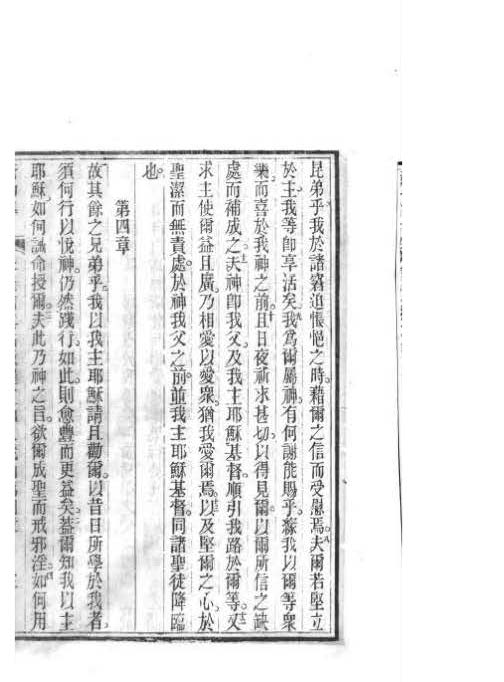 昆弟乎我於諸窘迫悵悒之時藉爾之信而受慰焉夫爾若堅立
於主我等卽享活矣我爲爾屬神有何謝能賜乎蓋我以爾等衆
樂而喜於我神之前且日夜祈求甚切以得見爾以爾所信之缺
處而補成之夫神卽我父及我主耶穌基督順引我路於爾等又
求主使爾益且廣乃相愛以愛衆猶我愛爾焉以及堅爾之心於
聖潔而無責處於神我父之前並我主耶穌基督同諸聖徒降臨
也
第四章
故其餘之兄弟乎我以我主耶穌請且勸爾以昔日所學於我者
須何行以悅神仍然踐行如此則愈豐而更益矣蓋爾知我以主
耶穌如何誡命授爾夫此乃神之旨欲爾成聖而戒邪淫如何用